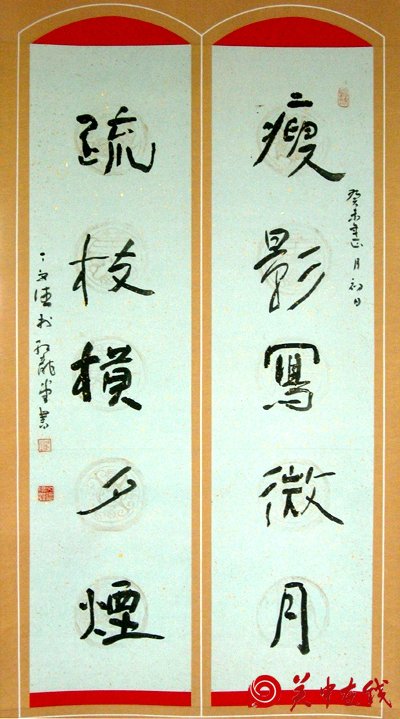 癸未年正月初日
瘦影寫微月
疏枝橫夕煙
中在线